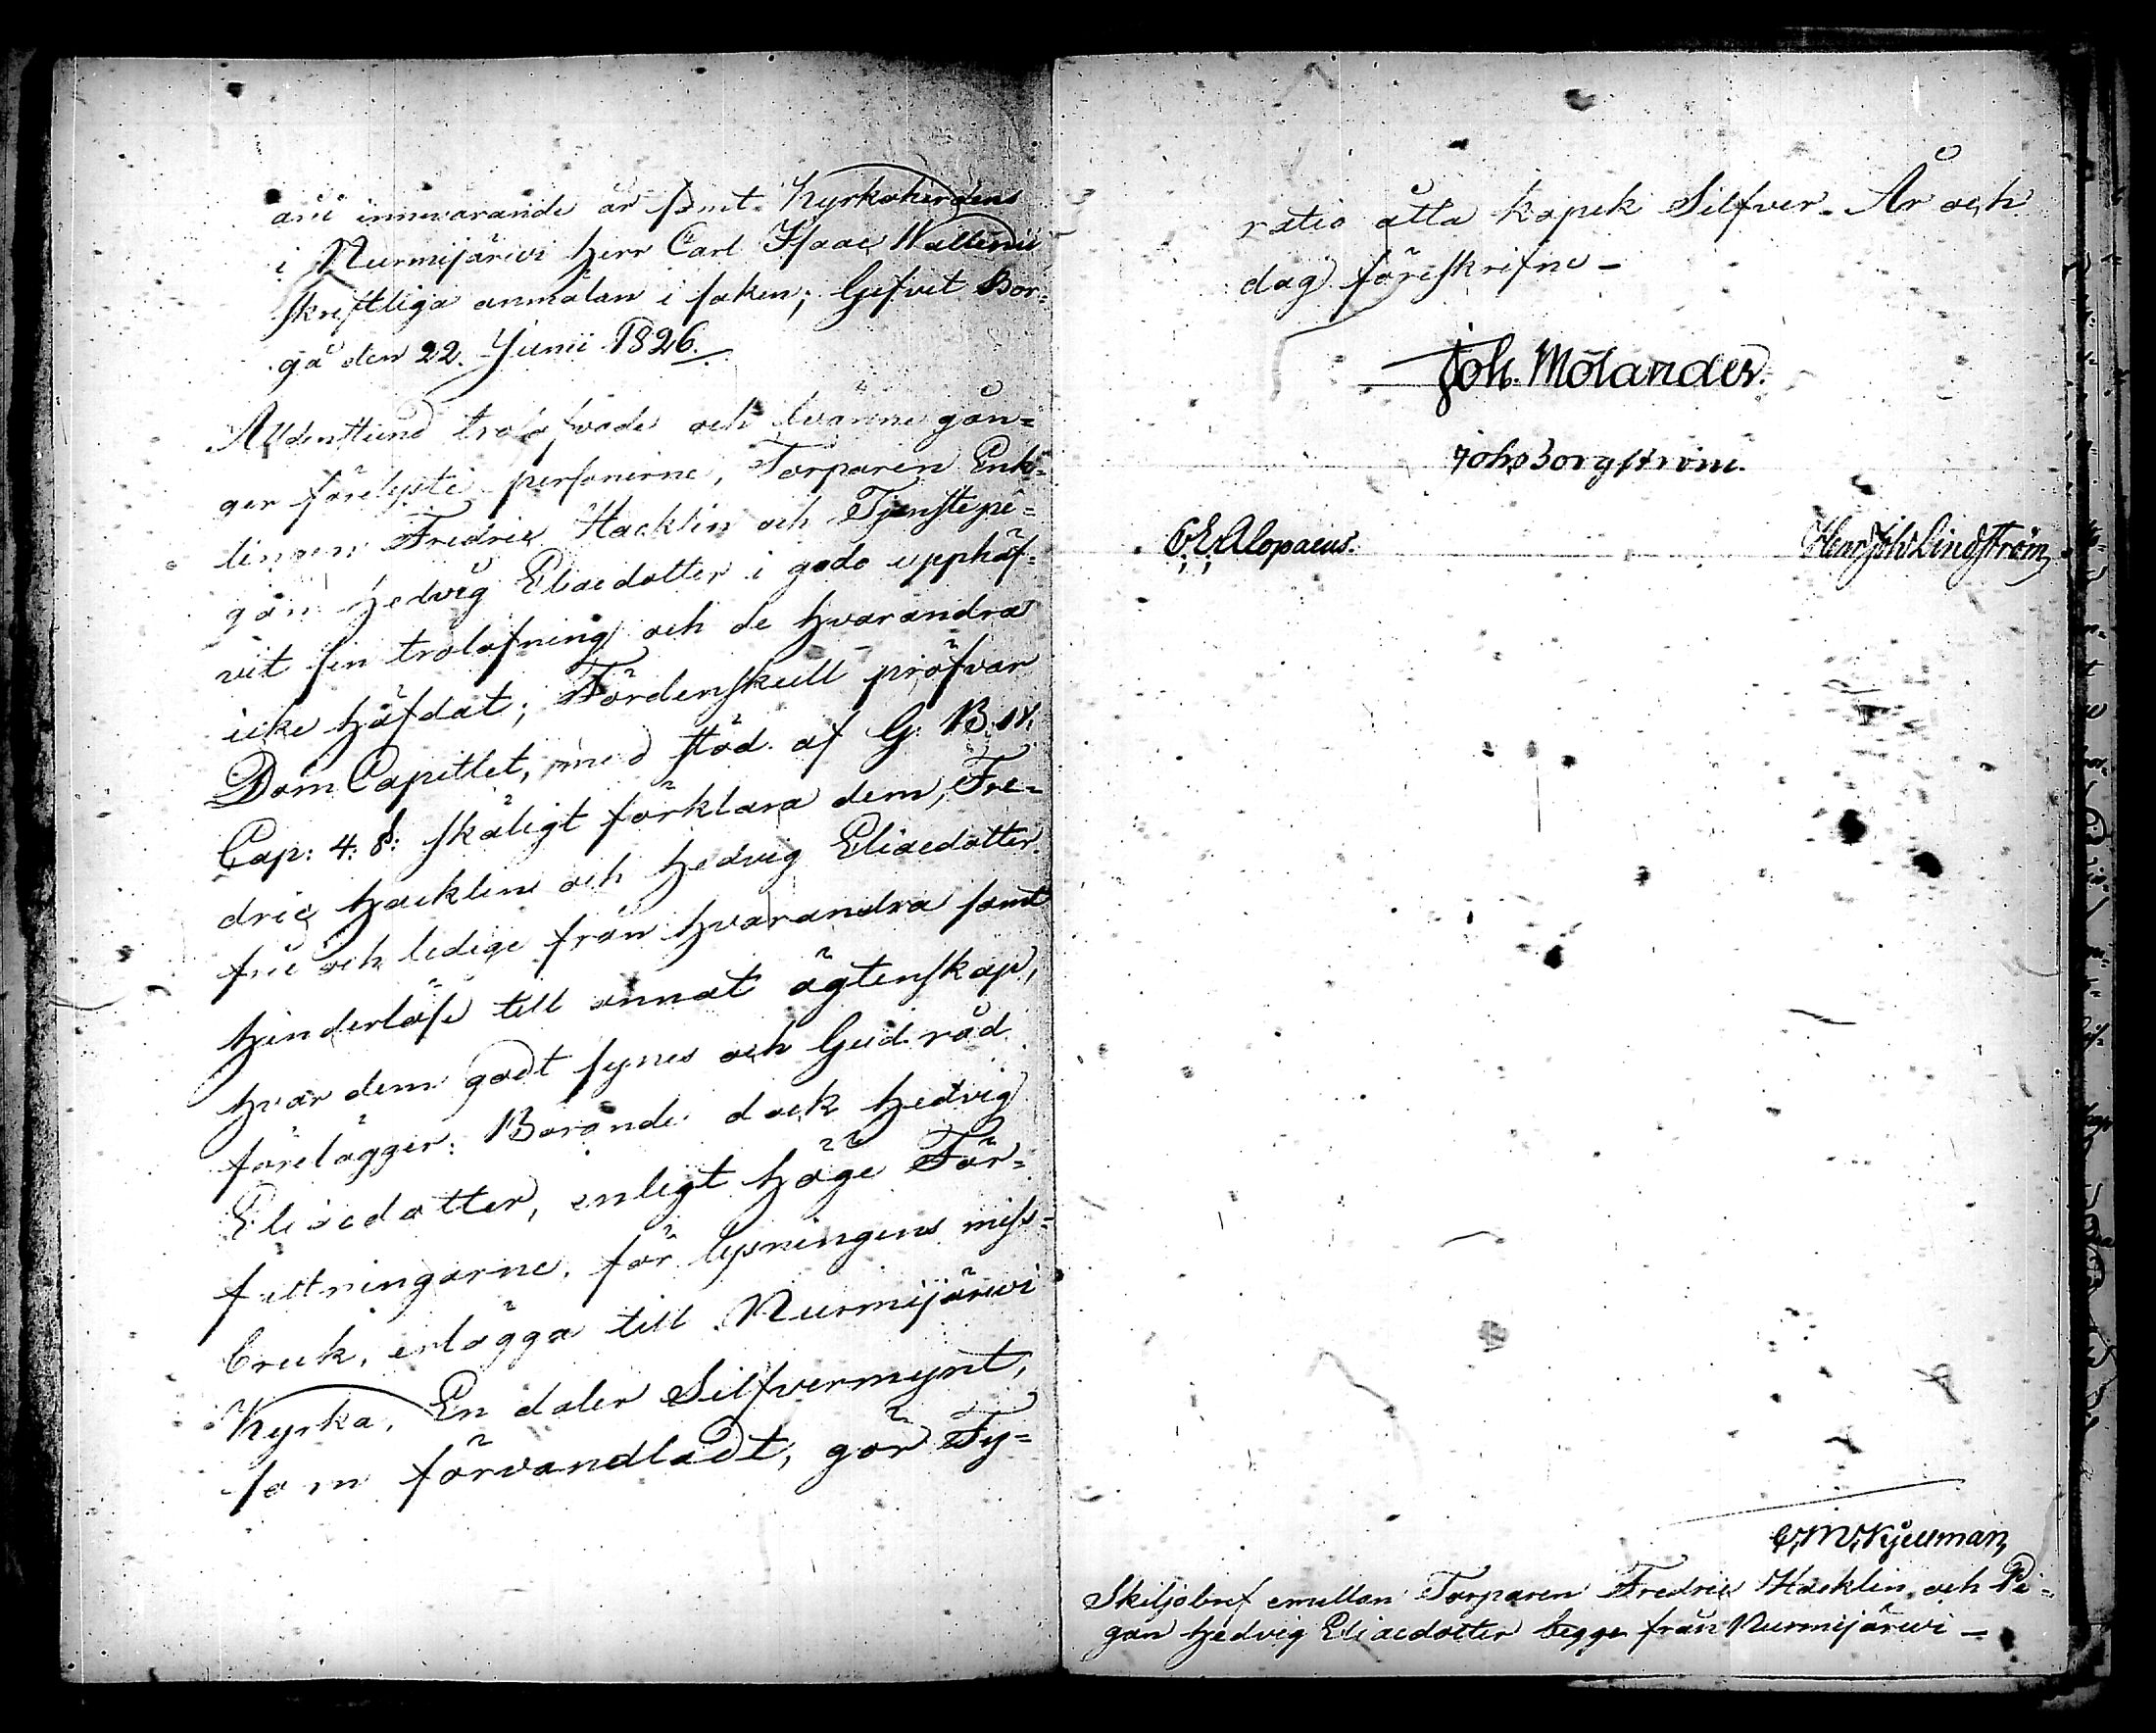 innevarande år samt Kyrkoherdens
i Nurmijärwi Herr Carl Isaac Wallenii
skriftliga anmälan i saken; Gifvet Bor-
gå den 22. Junii 1826.
Aldenstund trolofvade och tvänne gån-
ger förelyste personerne, Torparen Enk-
lingen Fredric Hacklin och Tjenstepi-
gan Hedvig Eliaedotter i godo upphäf-
vit sin trolofning och de hvarandra
icke häfdat; Fördenskull pröfvar
Dom Capitlet, med stöd af G. B. IV.
Cap: 4. §: skäligt förklara dem, Fre-
dric Hacklin och Hedvig Eliaedotter
frie och ledige från hvarandra samt
hinderlöse till annat ägtenskap,
hvar dem godt synes och Gud råd
förelägger: Börande dock Hedvig
Eliaedotter, enligt Höge För-
fattningarne, för lysningens miss-
bruk, erlägga till Nurmijärwi
Kyrka, En daler Silfvermynt,
som förvandladt, gör Fy-
ratio åtta kopek Silfver. År och
dag föreskrifne -
Joh. Molander.
Joh. Borgström.
C. E. Alopaeus. Henr. Joh. Lindström
C. M. Kjellman
Skiljobref emellan Torparen Fredric Hacklin och Pi-
gan Hedvig Eliaedotter begge från Nurmijärwi -